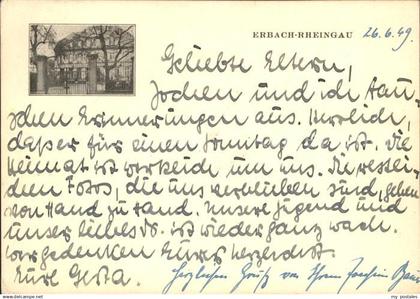 ERBACH-RHEINGAU 26.6.49.
Geliebte Eltern,
Jochen und ich tau-
schen Erinnerungen aus. Herrlich,
daß er für einen Sonntag da ist. Die
Heimat ist um uns. Die
Fotos, die uns verblieben sind, gehen
von Hand zu Hand. Unsere Jugend und
unser liebes ist wieder ganz wach.
Wir gedenken Eurer herzlichst.
Eure Gerta. Herzlichen Gruß von Ihrem Joachim